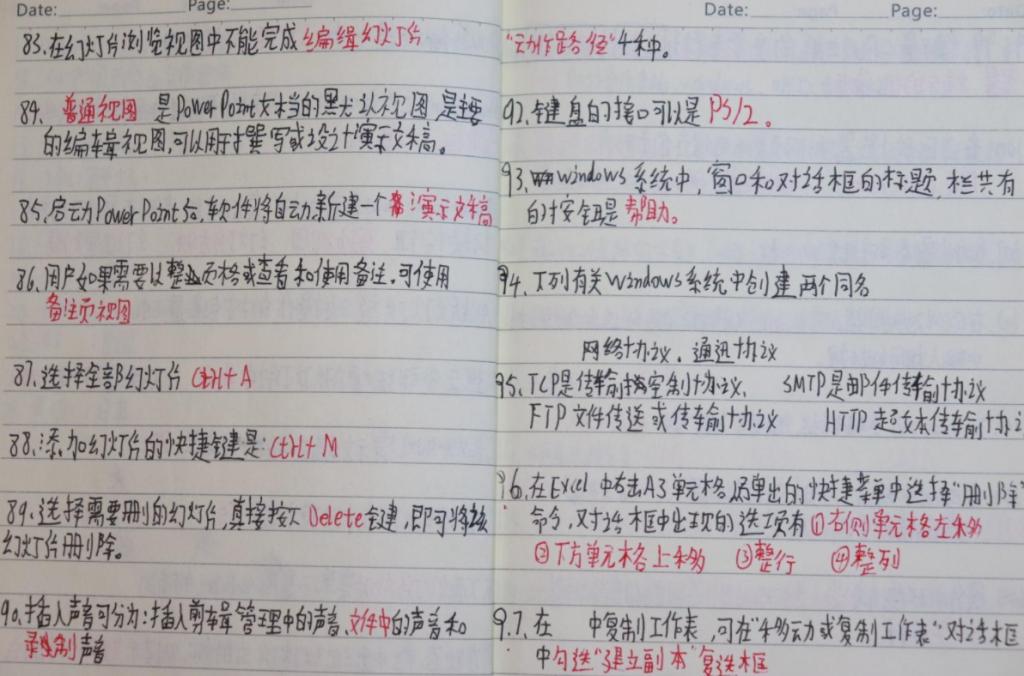 Date: Page:
83.在幻灯片浏览视图中不能完成编缉幻灯片
84、普通视图 是PowerPoint文档的默认视图,是主要
的编辑视图,可以用于撰写或设计演示文稿。
85.启动PowerPoint后,软件将自动新建一个 演示文稿
86.用户如果需要以整页格或查看和使用备注.可使用
备注页视图
87.选择全部幻灯片 Ctrl+A
88.添加幻灯片的快捷键是:Ctrl+M
89.选择需要删的幻灯片,直接按下Delete键,即可将该
幻灯片删除。
90.插入声音可分为:插入剪辑管理中的声音、文件中的声音和
录制声音
Date: Page:
"动作路径"4种。
92.键盘的接口可以是PS/2。
93.windows系统中,窗口和对话框的标题栏共有
的按钮是帮助。
94.下列有关Windows系统中创建两个同名
网络协议.通迅协议
95.TCP是传输控制协议、 SMTP是邮件传输协议
FTP文件传送或传输协议 HTTP超文本传输协议
96.在Excel中右击A3单元格,后单出的"快捷菜单中选择"删除"
命令,对话框中出现的选项有①右侧单元格左移
②下方单元格上移 ③整行 ④整列
97.在 中复制工作表,可在"移动或复制工作表"对话框
中勾选"建立副本"复选框